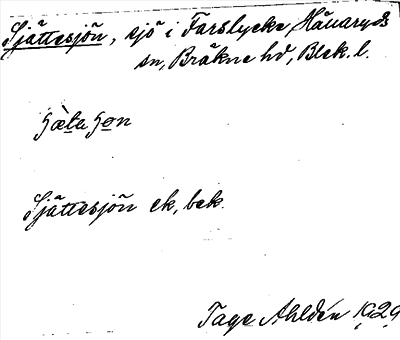 Sjättesjön, sjö i Farslycke, Hällaryds
sn, Bräkne hd, Blek. l.
ɧæta ɧøn
Sjättesjön ek, bek.
Tage Ahldén 1929